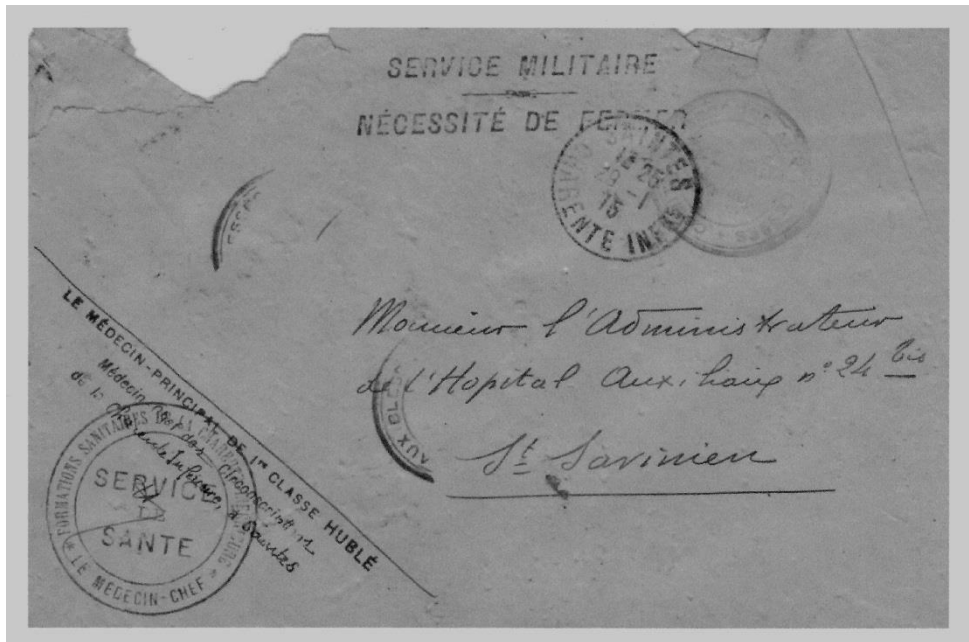 SERVICE MILITAIRE
NÉCESSITÉ DE FERMER
SAINTES
12 25
28 - 1
15
CHARENTE INFRE
ESSÉ
Monsieur l'Administrateur
de l'Hopital Auxiliaire n° 24 bis
St Savinien
AUX BLESS
LE MÉDECIN-PRINCIPAL DE 1RE CLASSE HUBLÉ
Médecin Chef des Circonscriptions
de la Charente Inférieure, à Saintes
FORMATIONS SANITAIRES DE LA CHARENTE INFÉRIEURE
SERVICE
DE
SANTÉ
* LE MÉDECIN-CHEF *